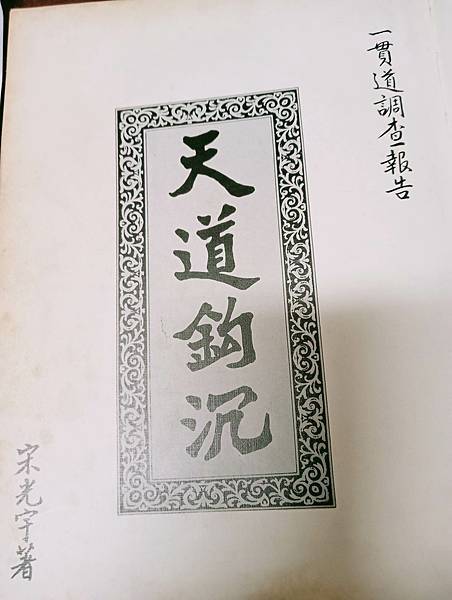 一貫道調查報告
天道鈎沉
宋光宇著